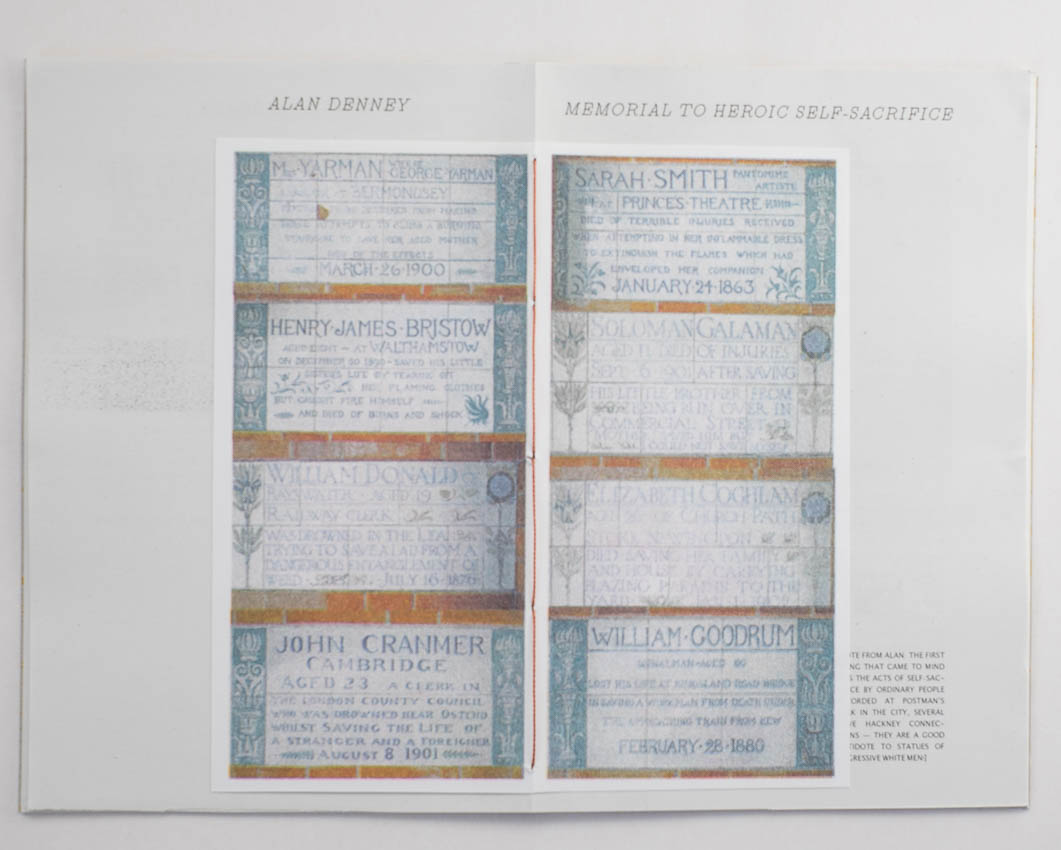 ALAN DENNEY
MEMORIAL TO HEROIC SELF-SACRIFICE
MRS YARMAN WIFE OF GEORGE YARMAN
BERMONDSEY
TO SAVE HER AGED MOTHER
DIED OF THE EFFECTS
MARCH·26·1900
HENRY·JAMES·BRISTOW
AGED EIGHT – AT WALTHAMSTOW
ON DECEMBER 30 1890 – SAVED HIS LITTLE
SISTERS LIFE BY TEARING OFF
HER FLAMING CLOTHES
BUT CAUGHT FIRE HIMSELF
AND DIED OF BURNS AND SHOCK
WILLIAM DONALD OF
BAYSWATER · AGED 19
RAILWAY CLERK
WAS DROWNED IN THE LEA
TRYING TO SAVE A LAD FROM A
DANGEROUS ENTANGLEMENT OF
WEED JULY 16 · 1876
JOHN CRANMER
CAMBRIDGE
AGED 23 A CLERK IN
THE LONDON COUNTY COUNCIL
WHO WAS DROWNED NEAR OSTEND
WHILST SAVING THE LIFE OF
A STRANGER AND A FOREIGNER
AUGUST 8 1901
SARAH·SMITH PANTOMIME
ARTISTE
AT PRINCE'S·THEATRE
DIED OF TERRIBLE INJURIES RECEIVED
WHEN ATTEMPTING IN HER INFLAMMABLE DRESS
TO EXTINGUISH THE FLAMES WHICH HAD
ENVELOPED HER COMPANION
JANUARY·24·1863
SOLOMAN GALAMAN
AGED 11 DIED OF INJURIES
SEPT 6 1901 AFTER SAVING
HIS LITTLE BROTHER FROM
BEING RUN OVER IN
COMMERCIAL STREET
ELIZABETH COGHLAM
AGED 26 OF CHURCH PATH
STOKE NEWINGTON
DIED SAVING HER FAMILY
AND HOUSE BY CARRYING
BLAZING PARAFFIN TO THE
YARD
WILLIAM·GOODRUM
SIGNALMAN·AGED 60
LOST HIS LIFE AT KINGSLAND ROAD BRIDGE
IN SAVING A WORKMAN FROM DEATH UNDER
THE APPROACHING TRAIN FROM KEW
FEBRUARY·28·1880
OTE FROM ALAN: THE FIRST
NG THAT CAME TO MIND
S THE ACTS OF SELF-SAC-
CE BY ORDINARY PEOPLE
ORDED AT POSTMAN'S
K IN THE CITY, SEVERAL
VE HACKNEY CONNEC-
NS — THEY ARE A GOOD
TIDOTE TO STATUES OF
GRESSIVE WHITE MEN.]